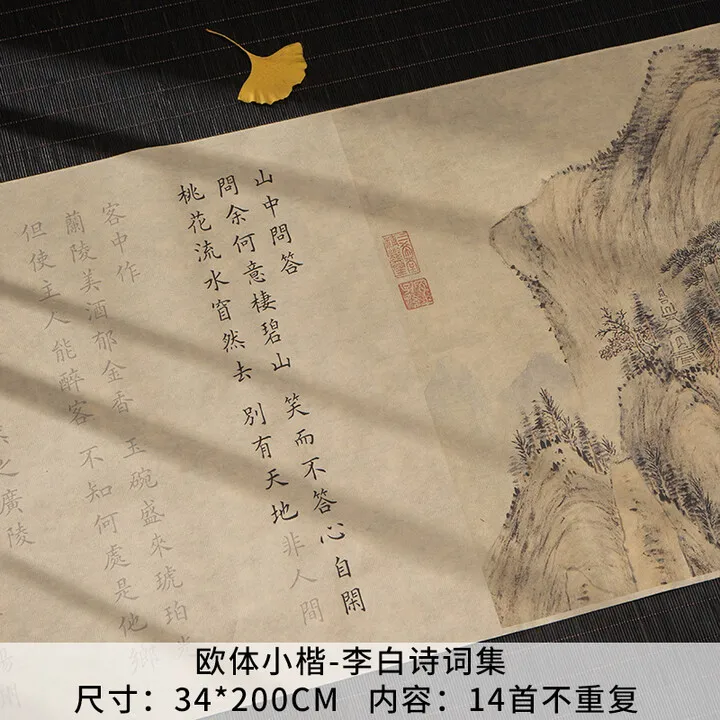 山中問答
問余何意棲碧山 笑而不答心自閑
桃花流水窅然去 別有天地非人間
客中作
蘭陵美酒郁金香 玉碗盛來琥珀光
但使主人能醉客 不知何處是他鄉
之廣陵
欧体小楷-李白诗词集
尺寸：34*200CM 内容：14首不重复